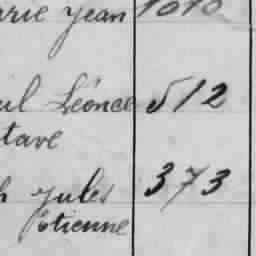 arie Jean 1010
ul Léonce 512
tave
h Jules 373
Etienne